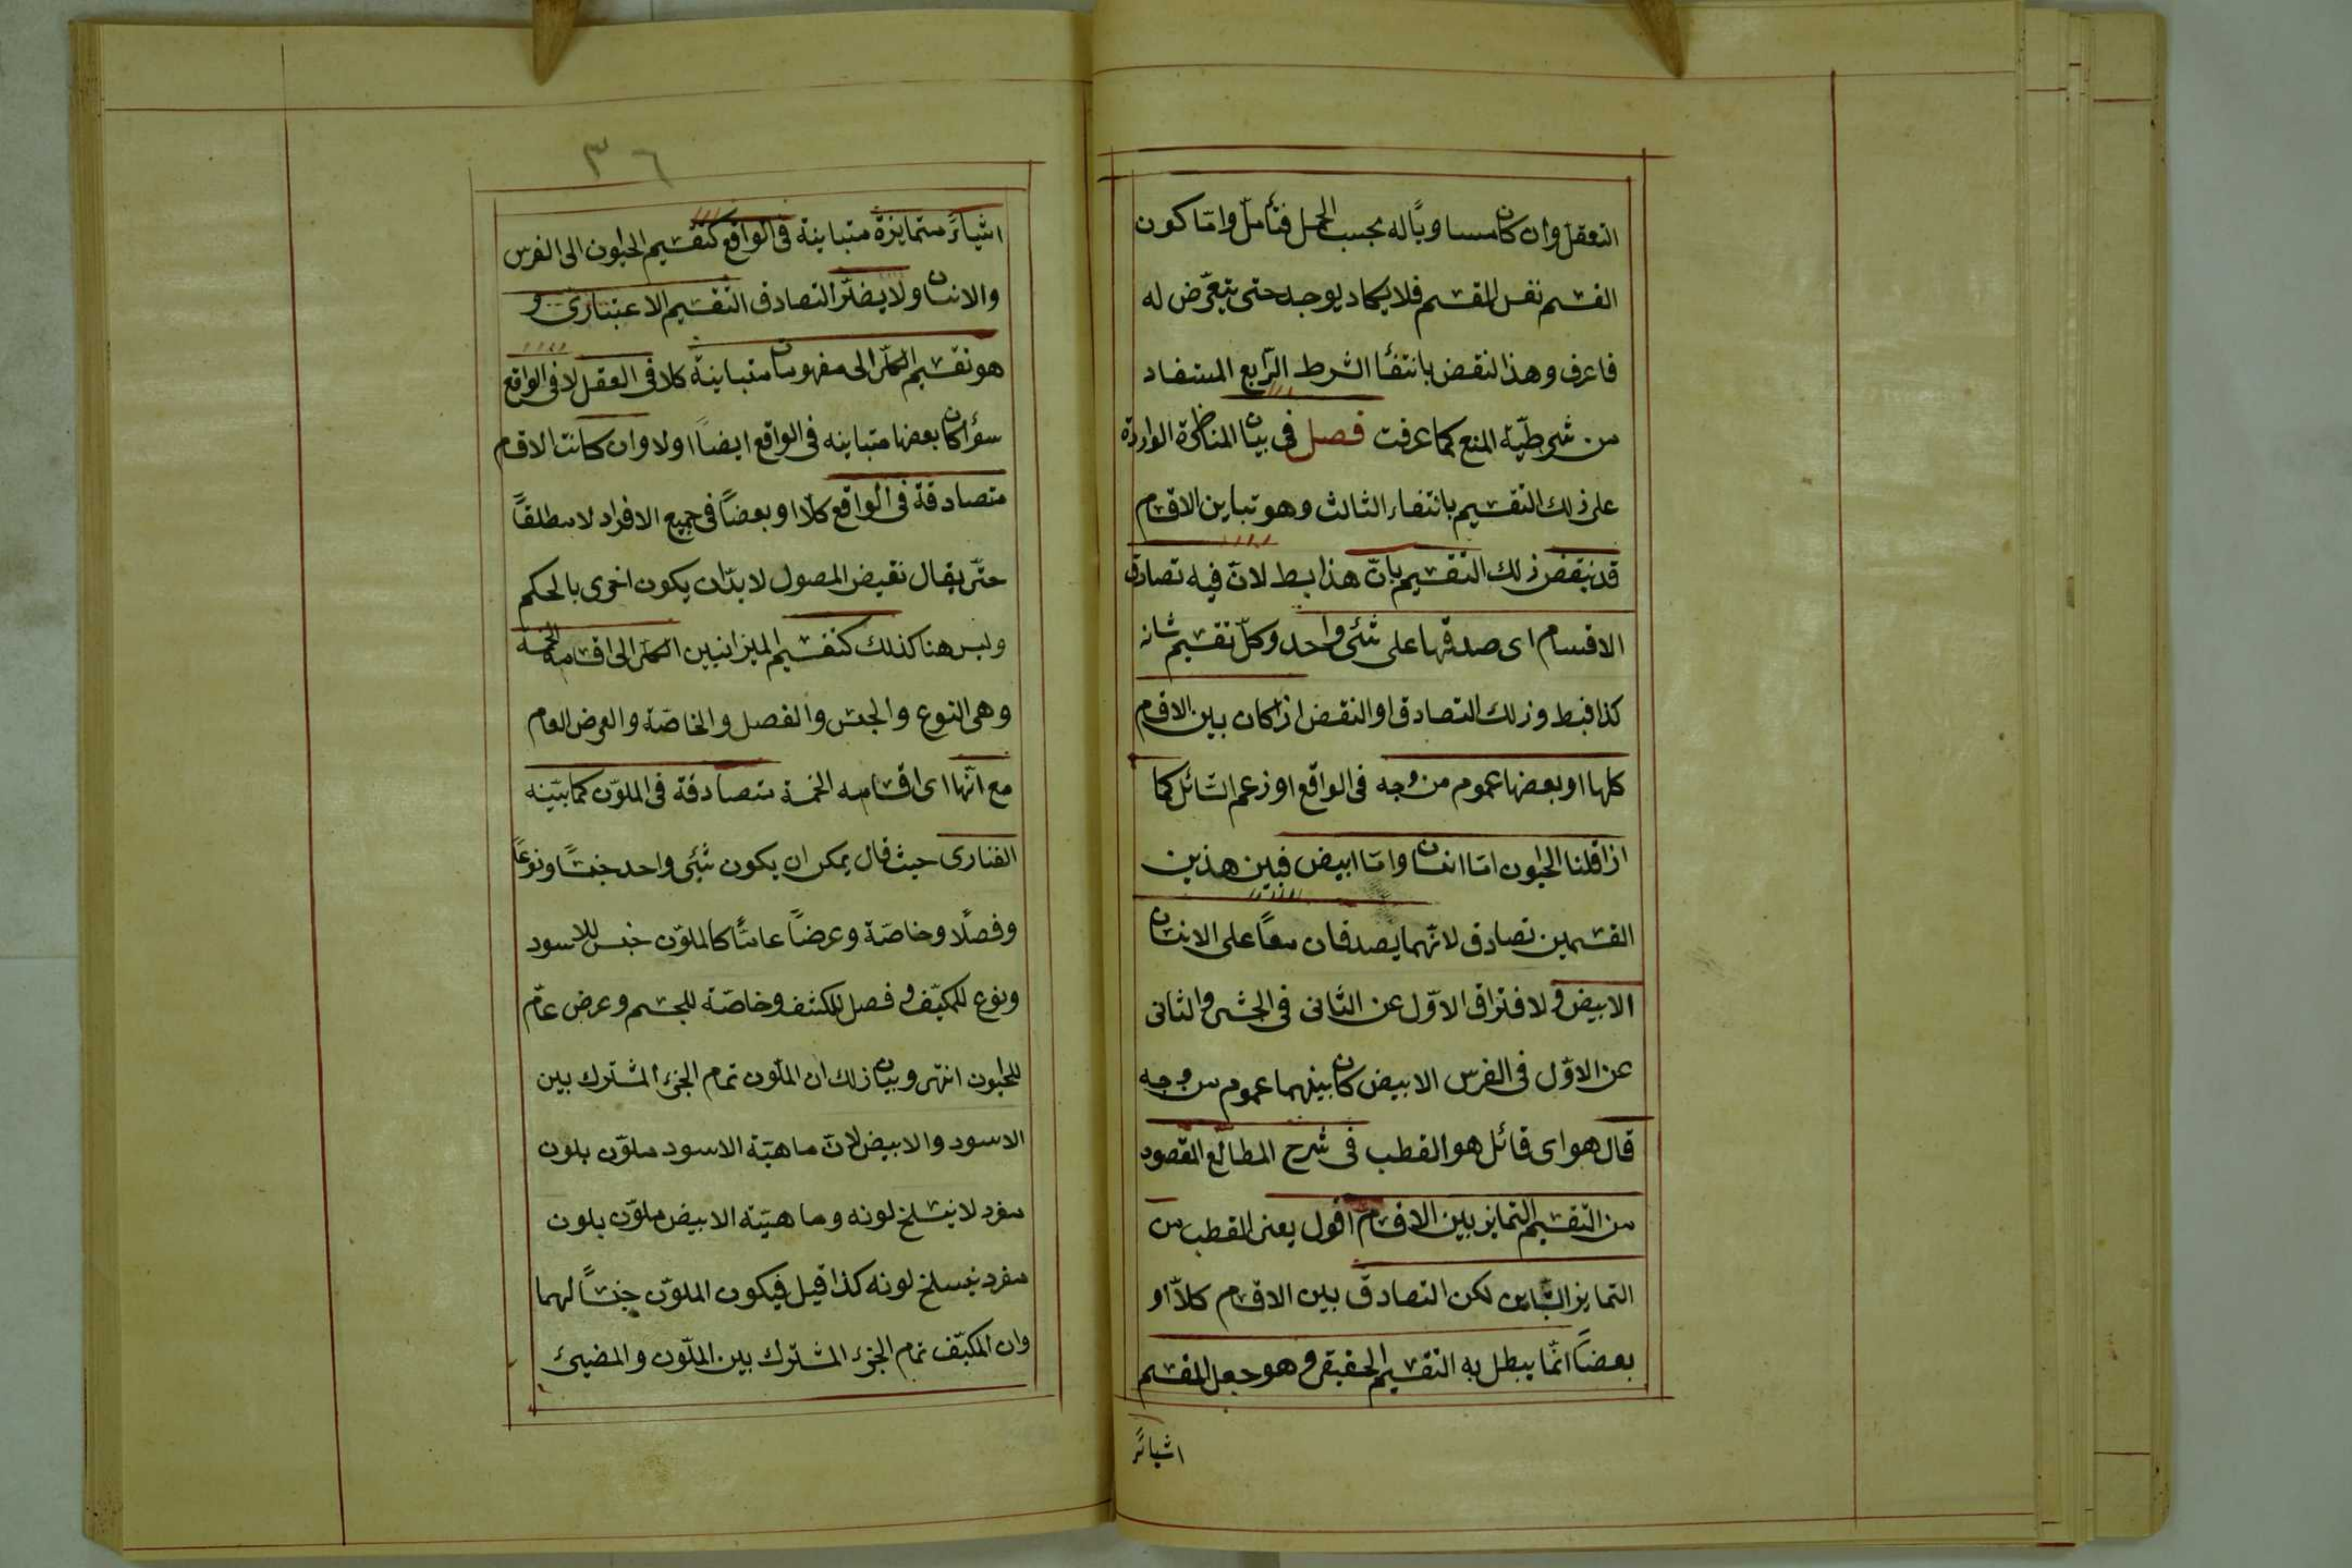 التعقل وان كان مساويًا له بحسب الحمل فتأمل وامّا كون
القسم نفس المقسم فلا يكاد يوجد حتى يتعرّض له
فاعرف وهذا النقض بانتفأ الشرط الرّابع المستفاد
من شرطيّة المنع كما عرفت فصل فى بيان المناظرة الواردة
على ذلك التقسيم بانتفاء الثالث وهو تباين الاقسام
قد ينقض ذلك التقسيم بانّ هذا بط لانّ فيه تصادق
الاقسام اى صدقها على شئى واحد وكلّ تقسيم شانه
كذا فبط وذلك التصادق او النقض اذا كان بين الاقسام
كلها او بعضها عموم من وجه فى الواقع او زعم السّائل كما
اذا قلنا الحيوان امّا انسان وامّا ابيض فبين هذين
القسمين تصادق لانّهما يصدقان معًا على الانسان
الابيض و لافتراق الاوّل عن الثانى فى الحبشى والثانى
عن الاوّل فى الفرس الابيض كان بينهما عموم من وجه
قال هو اى قائل هو القطب فى شرح المطالع المقصود
من التقسيم التمايز بين الاقسام اقول يعنى القطب من
التمايز التباين لكن التصادق بين الاقسام كلاّ او
بعضاً انّما يبطل به التقسيم الحقيقى و هو جعل المقسم
اشيائً
٣٦
اشيائً متمايزة متباينة فى الواقع كتقسيم الحيوان الى الفرس
والانسان و لا يضرّ التصادق التقسيم الاعتبارى و
هو تقسيم الكلّى الى مفهومات متباينة كلا فى العقل لا فى الواقع
سؤا كان بعضها متباينه فى الواقع ايضاً اولا وان كانت الاقسام
متصادقة فى الواقع كلاّ او بعضاً فى جميع الافراد لا مطلقاً
حتّى يقال نقيض المصول لا بدّ ان يكون اخرى بالحكم
وليس هنا كذلك كتقسيم الميزانيين الكلّى الى اقسامه الخمسة
وهى النوع والجنس والفصل والخاصّة والعرض العام
مع انّها اى اقسامه الخمسة متصادقة فى الملوّن كما بيّنه
الفنارى حيث قال يمكن ان يكون شئى واحد جنسًا ونوعاً
وفصلًا وخاصّة وعرضاً عامّاً كالملوّن جنس للاسود
ونوع للمكيّف و فصل للكثيف وخاصّة للجسم وعرض عامّ
للحيوان انتهى وبيان ذلك ان الملّون تمام الجزء المشترك بين
الاسود والابيض لانّ ماهيّة الاسود ملوّن بلون
مفرد لا ينسلخ لونه وماهيّة الابيض ملوّن بلون
مفرد ينسلخ لونه كذا قيل فيكون الملوّن جنسًا لهما
وان المكيّف تمام الجزء المشترك بين الملّون والمضيئ